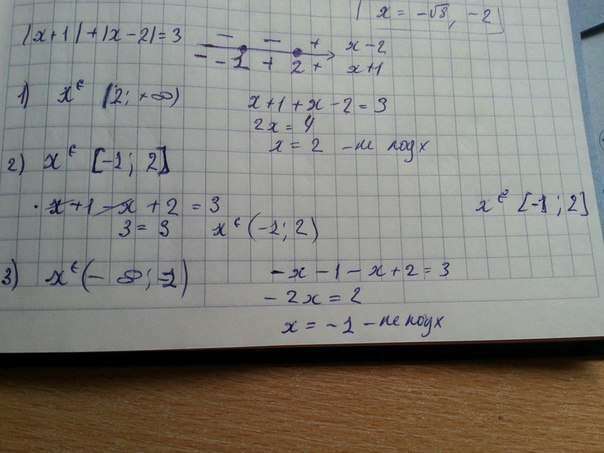 x = -√8, -2
|x+1|+|x-2|=3
- - + x-2
- -1 + 2 + x+1
1) x ∈ (2; +∞) x+1+x-2=3
2x=4
x=2 -не подх
2) x ∈ [-1; 2]
x+1-x+2=3 x ∈ [-1; 2]
3=3 x ∈ (-1; 2)
3) x ∈ (-∞; -1) -x-1-x+2=3
-2x=2
x=-1 -не подх